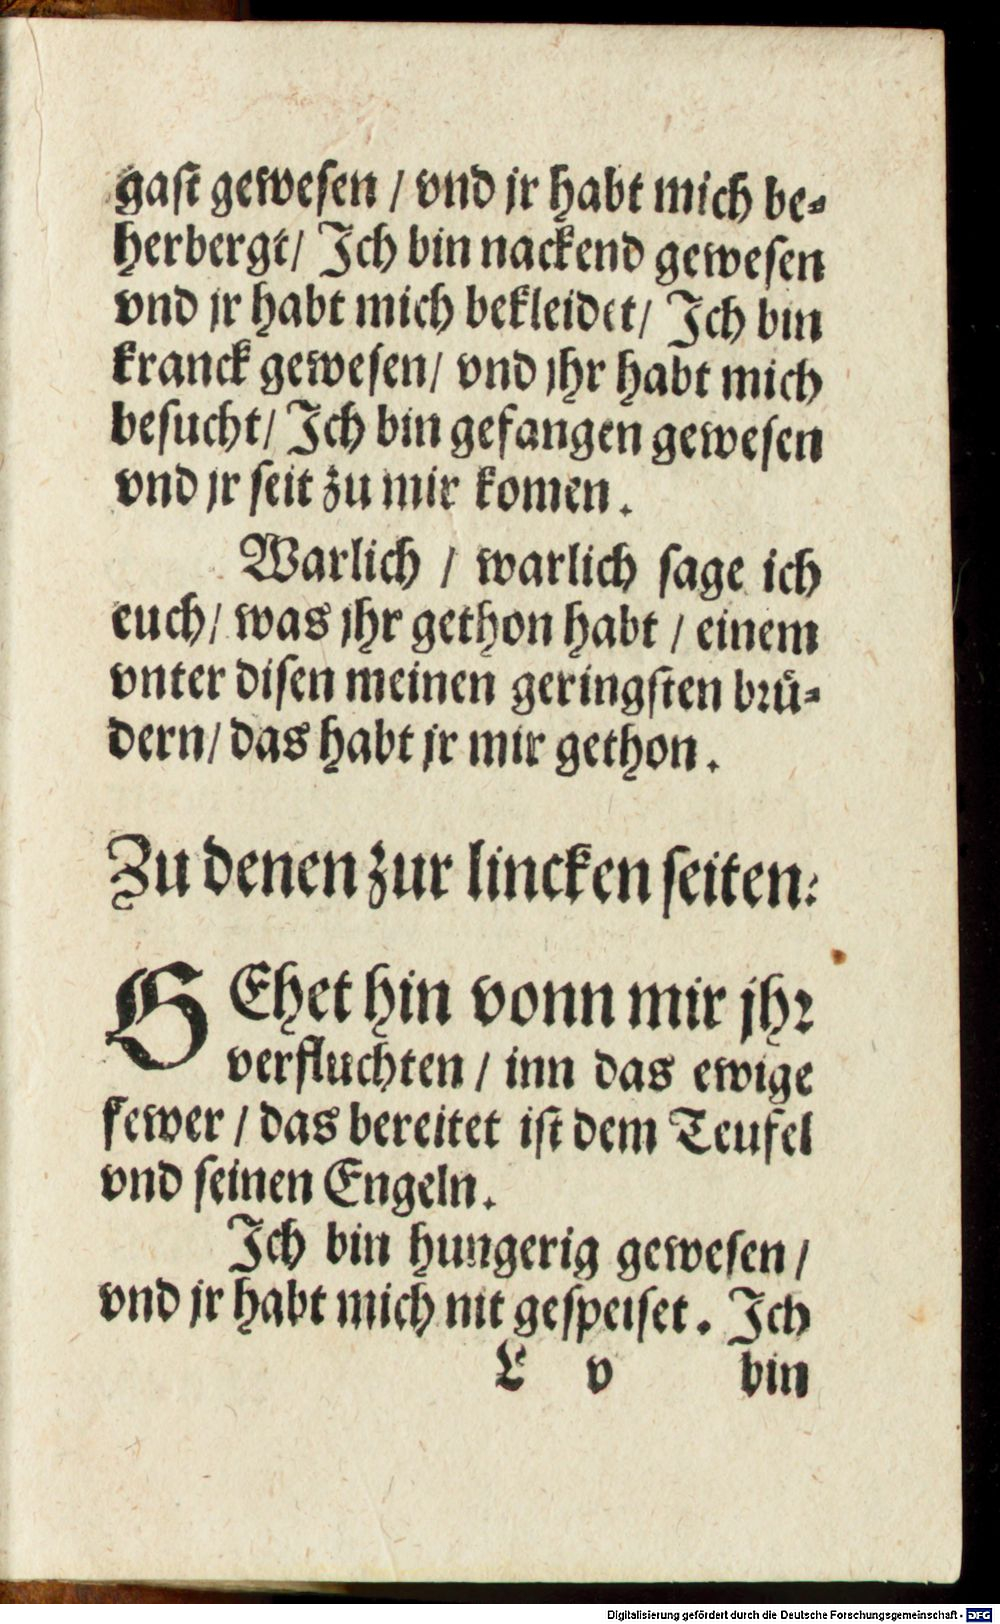 gast gewesen / vnd jr habt mich be-
herbergt / Ich bin nackend gewesen
vnd jr habt mich bekleidet / Ich bin
kranck gewesen / vnd jhr habt mich
besucht / Ich bin gefangen gewesen
vnd jr seit zu mir komen.
Warlich / warlich sage ich
euch / was jhr gethon habt / einem
vnter disen meinen geringsten brü-
dern / das habt jr mir gethon.
Zu denen zur lincken seiten:
GEhet hin vonn mir jhr
verfluchten / inn das ewige
fewer / das bereitet ist dem Teufel
vnd seinen Engeln.
Ich bin hungerig gewesen /
vnd jr habt mich nit gespeiset. Ich
L v bin
Digitalisierung gefördert durch die Deutsche Forschungsgemeinschaft - DFG